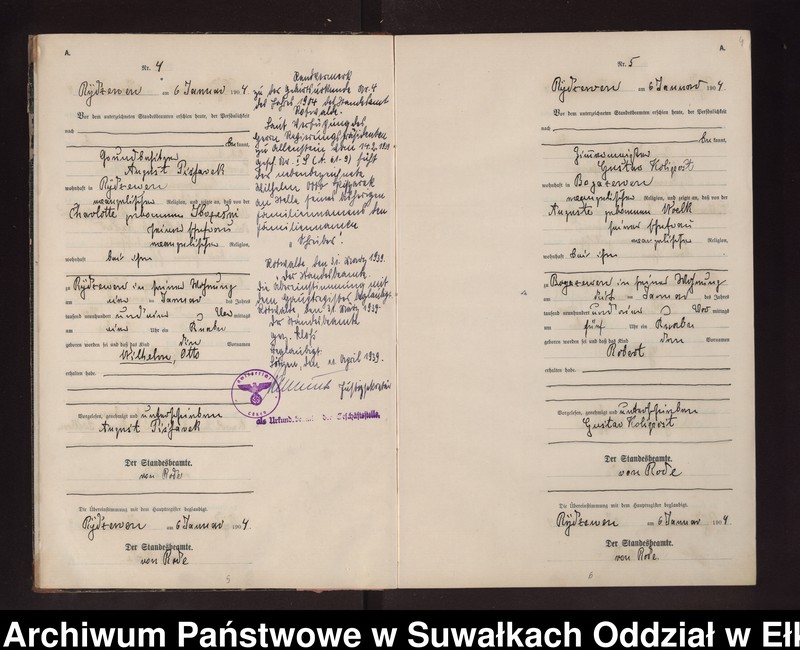 A.
Nr. 4
Rydzewen am 6 Januar 1904
Vor dem unterzeichneten Standesbeamten erschien heute, der Persönlichkeit
nach
bekannt,
Grundbesitzer
August Pissarek
wohnhaft in Rydzewen
evangelischer Religion, und zeigte an, daß von der
Charlotte geborenen
seiner Ehefrau
evangelischer Religion,
wohnhaft bei ihm
zu Rydzewen in seiner Wohnung
am Januar des Jahres
tausend neunhundert und vier Vor mittags
um Uhr ein Knabe
geboren worden sei und daß das Kind den Vornamen
Wilhelm, Otto
erhalten habe.
Vorgelesen, genehmigt und unterschrieben
August Pissarek
Der Standesbeamte.
von Rode
Die Übereinstimmung mit dem Hauptregister beglaubigt.
Rydzewen am 6 Januar 1904.
Der Standesbeamte.
von Rode
5
Randvermerk
zu der Geburtsurkunde Nr. 4
des Jahres 1904 des Standesamt
Rotwalde.
Laut Verfügung des
Herrn Regierungspräsidenten
zu Allenstein vom 14.2.
führt
der nebenbezeichnete
Wilhelm Otto Pissarek
an Stelle seines bisherigen
Familiennamens den
Familiennamen
Rotwalde den 31. März 1939.
Der Standesbeamte.
Die Übereinstimmung mit
dem Hauptregister beglaubigt
Rotwalde den 31. März 1939.
Der Standesbeamte
gez.
Beglaubigt
Lötzen, den April 1939.
Justizsekretär
als Urkundsbeamter der Geschäftsstelle.
4
A.
Nr. 5
Rydzewen am 6 Januar 1904
Vor dem unterzeichneten Standesbeamten erschien heute, der Persönlichkeit
nach
bekannt,
Zimmermeister
Gustav
wohnhaft in Bogatzewen
evangelischer Religion, und zeigte an, daß von der
Auguste geborenen Woelk
seiner Ehefrau
evangelischer Religion,
wohnhaft bei ihm
zu Bogatzewen in seiner Wohnung
am Januar des Jahres
tausend neunhundert und vier Vor mittags
um fünf Uhr ein Knabe
geboren worden sei und daß das Kind den Vornamen
Robert
erhalten habe.
Vorgelesen, genehmigt und unterschrieben
Gustav
Der Standesbeamte.
von Rode
Die Übereinstimmung mit dem Hauptregister beglaubigt.
Rydzewen am 6 Januar 1904
Der Standesbeamte.
von Rode
6
Archiwum Państwowe w Suwałkach Oddział w Ełk